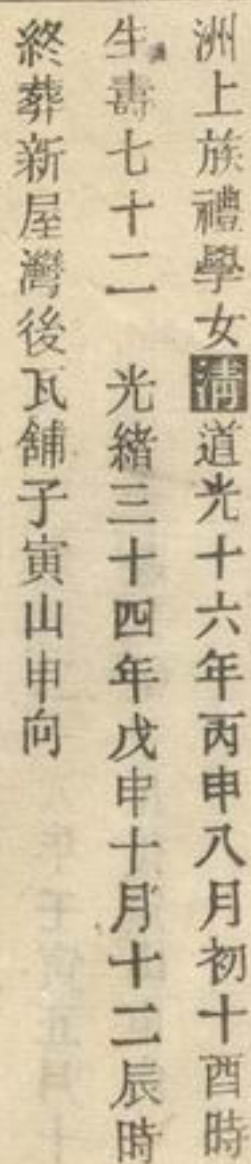 洲上族禮學女清道光十六年丙申八月初十酉時
生壽七十二 光緒三十四年戊申十月十二辰時
終葬新屋灣後瓦舖子寅山申向